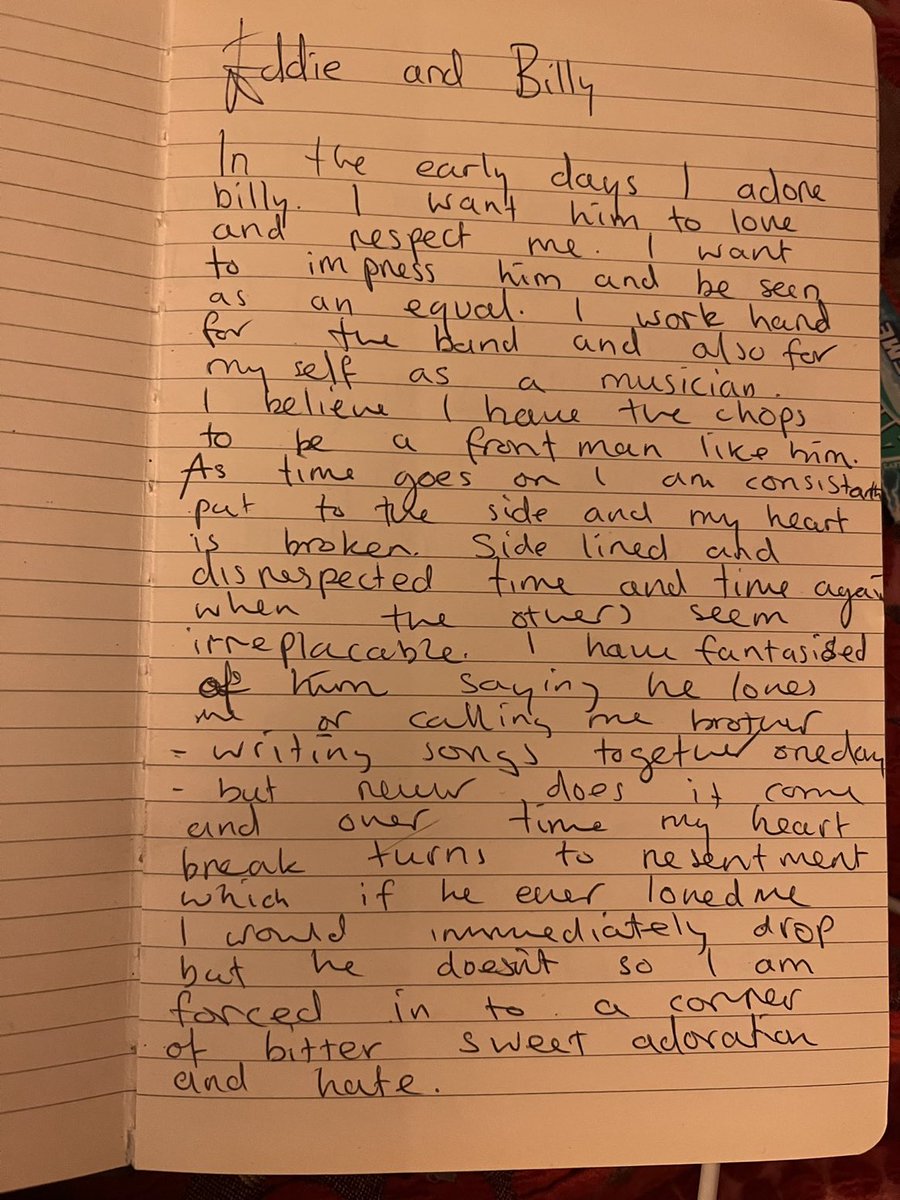 Eddie and Billy
In the early days I adore
billy. I want him to love
and respect me. I want
to impress him and be seen
as an equal. I work hard
for the band and also for
my self as a musician.
I believe I have the chops
to be a front man like him.
As time goes on I am consistantly
put to the side and my heart
is broken. Side lined and
disrespected time and time again
when the others seem
irreplacable. I have fantasised
of him saying he loves
me or calling me brother
- writing songs together oneday
- but never does it come
and over time my heart
break turns to resentment
which if he ever loved me
I would immediately drop
but he doesn't so I am
forced in to a corner
of bitter sweet adoration
and hate.